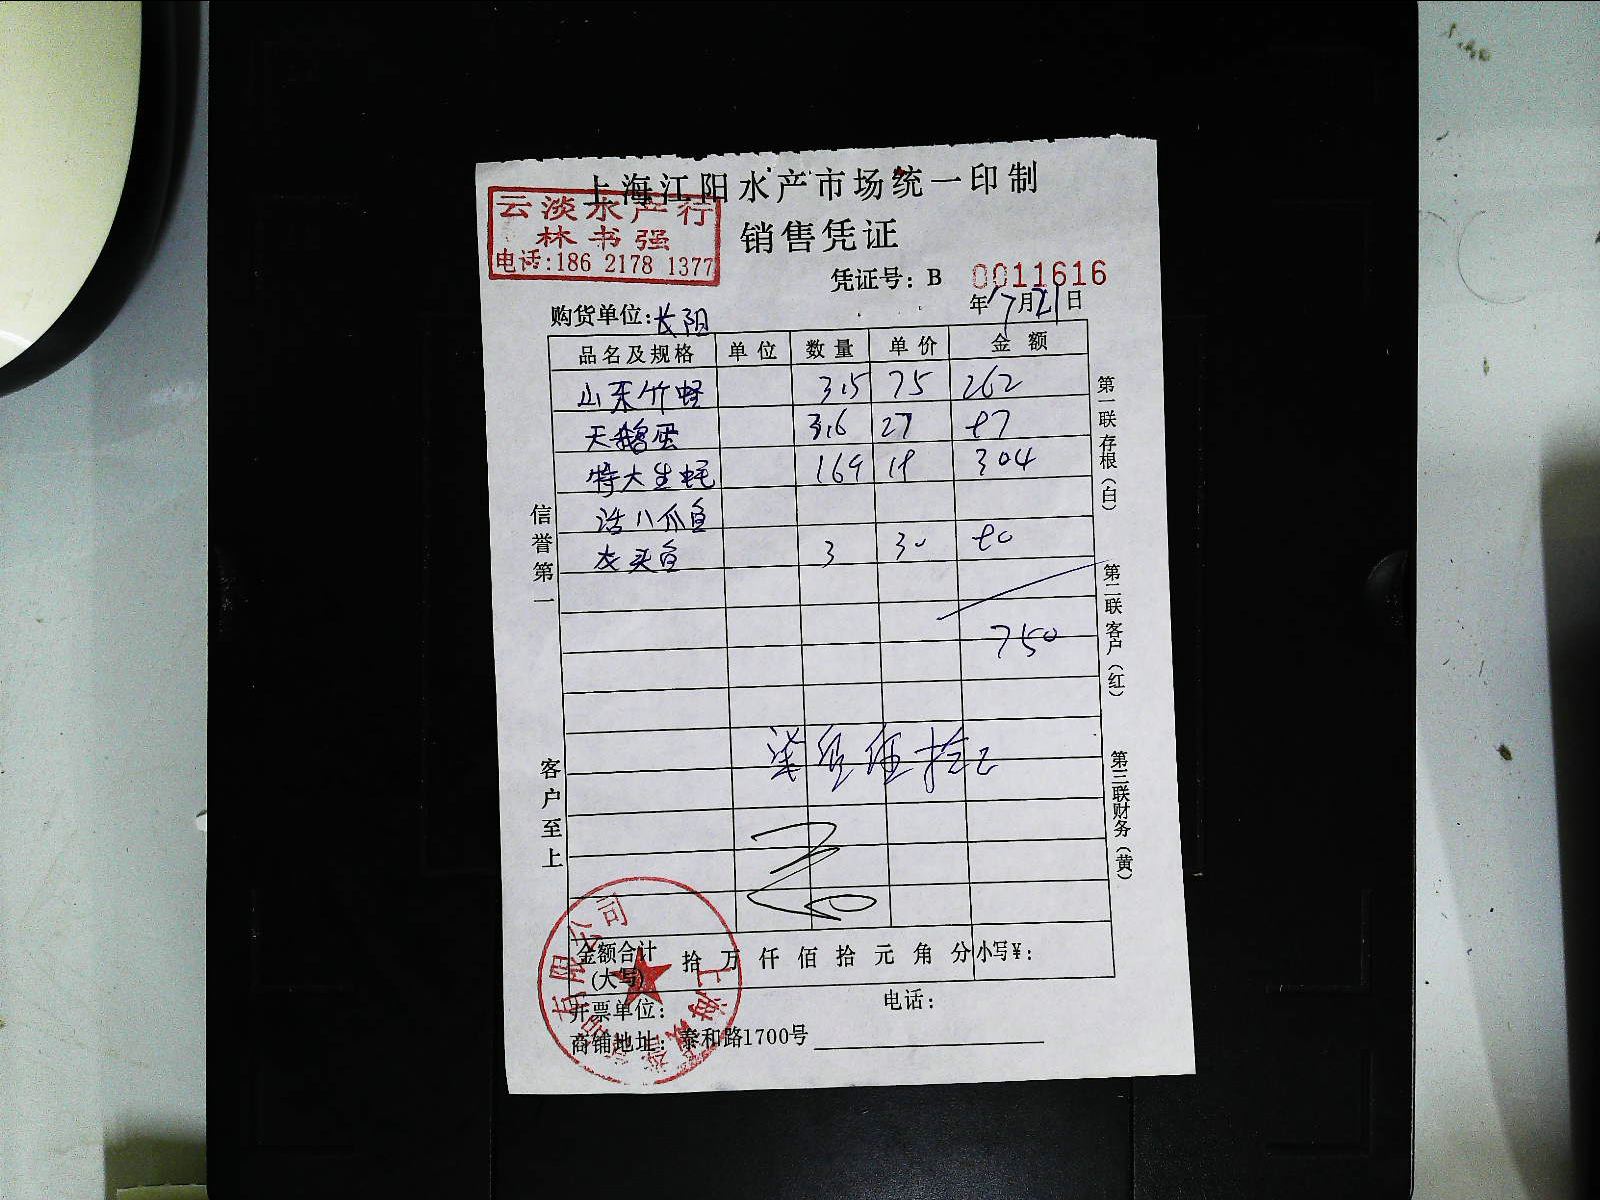 上海江阳水产市场统一印制
云淡水产行
林书强
电话:186 2178 1377
销售凭证
凭证号: B 0011616
购货单位:长阳
年17月21日
品名及规格 单位 数量 单价 金额
山东竹蛏 3.5 75 262
天鹅蛋 3.6 27 97
特大生蚝 169 18 304
活八爪鱼
3 30 90
750
柒佰伍拾元
信誉第一
客户至上
第一联存根(白)
第二联客户(红)
第三联财务(黄)
金额合计(大写) 拾 万 仟 佰 拾 元 角 分 小写¥:
开票单位: 电话:
商铺地址: 泰和路1700号
上海 有限公司